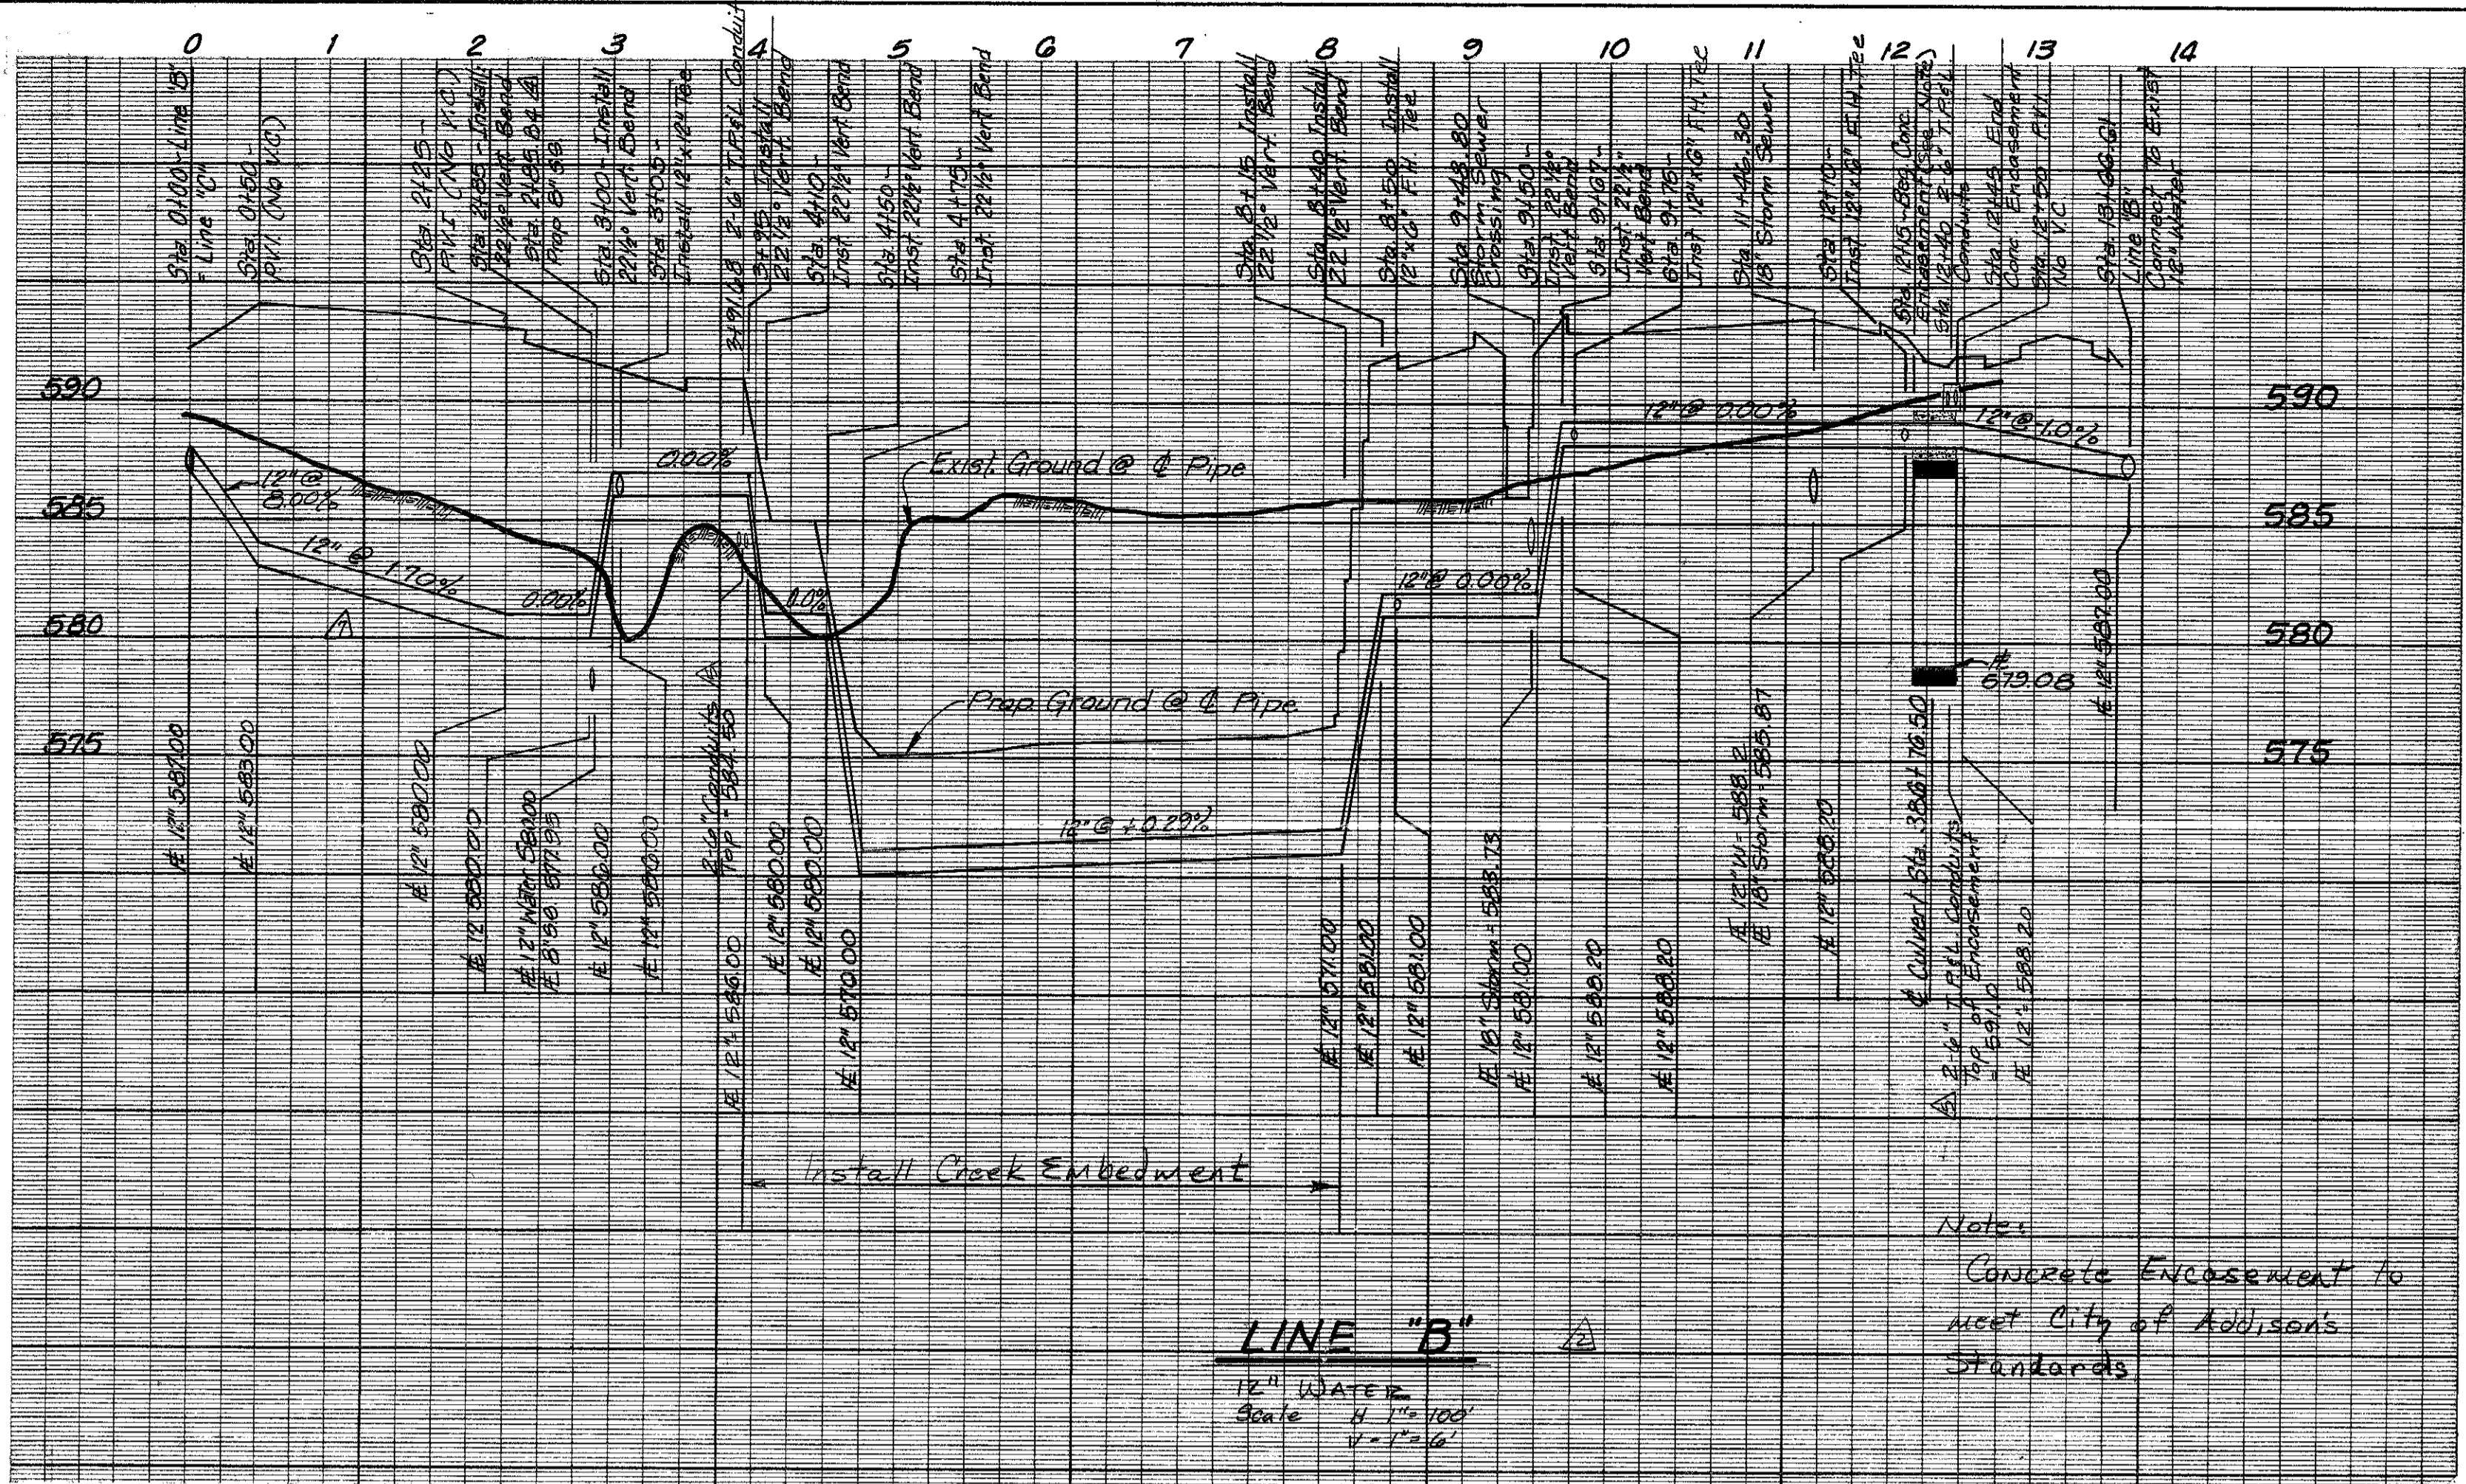 0 1 2 3 4 5 6 7 8 9 10 11 12 13 14
Sta. 0+00-Line "B"
= Line "C"
Sta. 0+50-
P.V.I. (No V.C.)
Sta. 2+25-
P.V.I. (No V.C.)
Sta. 2+85-Install
22 1/2° Vert. Bend
Sta. 2+85.84 4
Prop 8" SS.
Sta. 3+00-Install
22 1/2° Vert. Bend
Sta. 3+05-
Install 12"x12" Tee
3+91.68 2-6" T.P.&L. Conduit
3+95 Install
22 1/2° Vert. Bend
Sta. 4+10-
Inst. 22 1/2° Vert. Bend
Sta. 4+50-
Inst. 22 1/2° Vert Bend
Sta. 4+75-
Inst. 22 1/2° Vert Bend
Sta. 8+15 Install
22 1/2° Vert. Bend
Sta. 8+40 Install
22 1/2° Vert. Bend
Sta. 8+50 Install
12"x6" F.H. Tee
Sta. 9+48.80
Storm Sewer
Crossing
Sta. 9+50-
Inst. 22 1/2°
Vert Bend
Sta. 9+67-
Inst 22 1/2°
Vert Bend
Sta. 9+76-
Inst 12"x6" F.H. Tee
Sta. 11+46.30
18" Storm Sewer
Sta. 12+10-
Inst. 12"x6" F.H. Tee
Sta. 12+15-Beg. Conc.
Encasement (See Note)
Sta. 12+40 2-6" T.P.&L.
Conduits
Sta. 12+45 End
Conc. Encasement
Sta. 12+50 P.V.I.
No V.C.
Sta. 13+66.61
Line "B"
Connect To Exist
12" Water
590
590
585
585
580
580
575
575
12" @
8.00%
12" @ 1.70%
0.00%
0.00%
0.0%
Exist. Ground @ ℄ Pipe
12" @ 0.00%
12" @ 0.00%
12" @ -1.0%
1
Prop. Ground @ ℄ Pipe
12" @ +0.29%
℄ 12" 587.00
℄ 12" 583.00
℄ 12" 580.00
℄ 12" 580.00
℄ 12" Water 580.00
℄ 8" SS 577.95
℄ 12" 586.00
℄ 12" 586.00
2-6" Conduits
Top = 584.50
℄ 12" = 586.00
℄ 12" 580.00
℄ 12" 580.00
℄ 12" 570.00
℄ 12" 571.00
℄ 12" 581.00
℄ 12" 581.00
℄ 18" Storm = 583.73
℄ 12" 581.00
℄ 12" 588.20
℄ 12" 588.20
℄ 12" W = 588.2
℄ 18" Storm = 585.87
℄ 12" 588.20
℄ Culvert Sta. 386+76.50
℄
579.08
2-6" T.P.&L. Conduits
Top of Encasement
= 591.0
℄ 12" = 588.20
℄ 12" 587.00
Install Creek Embedment
Note:
Concrete Encasement to
meet City of Addison's
Standards
LINE "B"
2
12" WATER
Scale H 1" = 100'
V - 1" = 6'